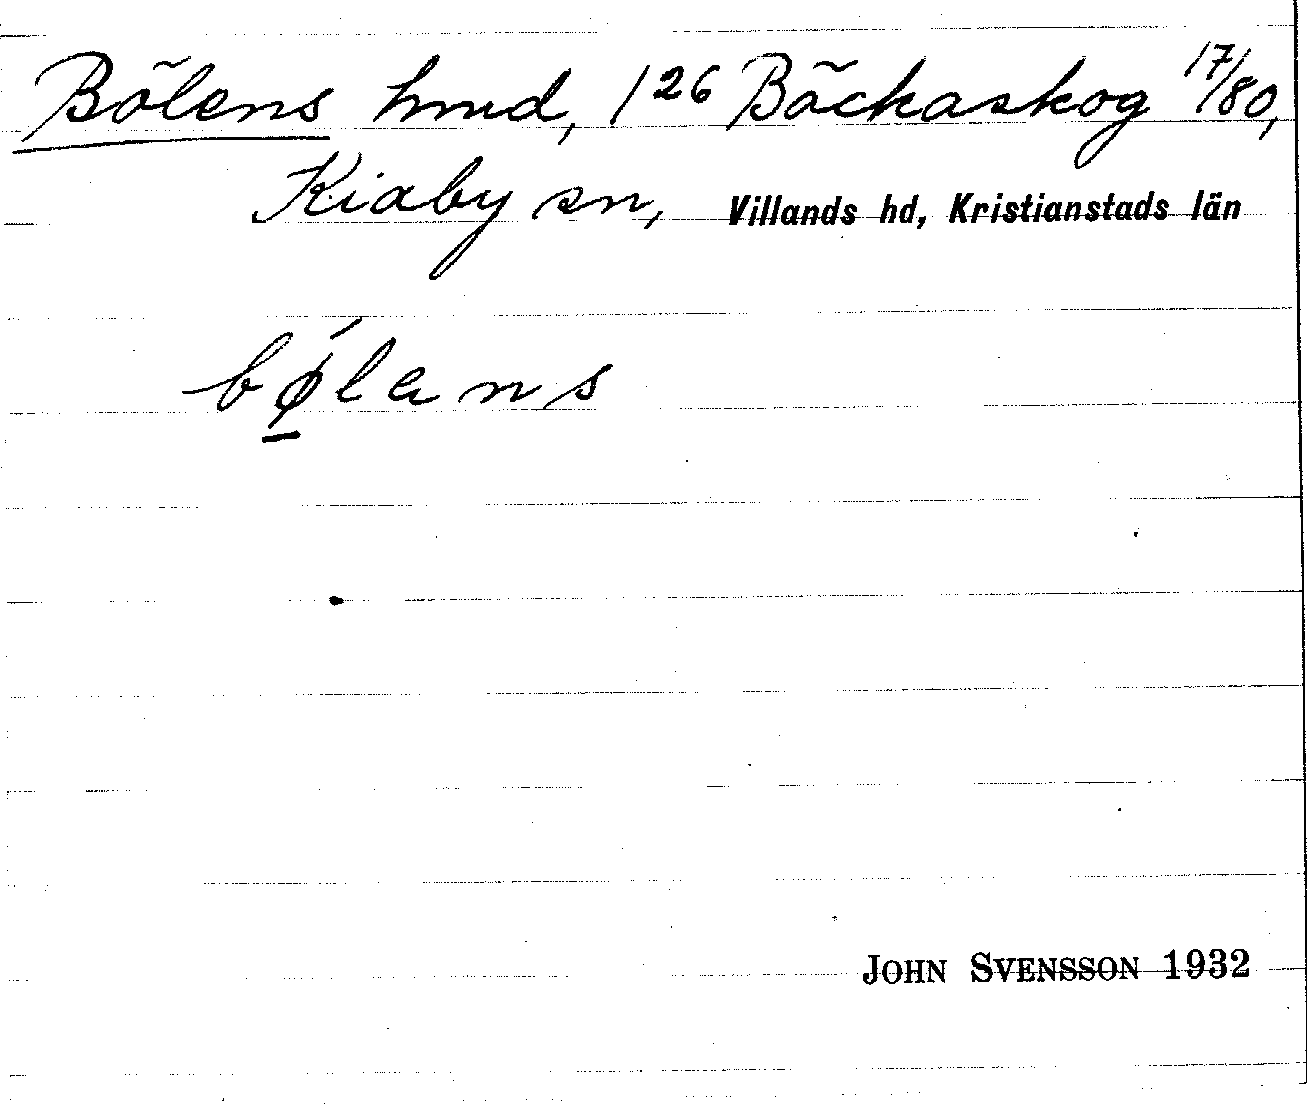 Bölens hmd, 1²⁶ Bäckaskog 17/80,
Kiaby sn, Villands hd, Kristianstads län
bǿ̱lans
JOHN SVENSSON 1932